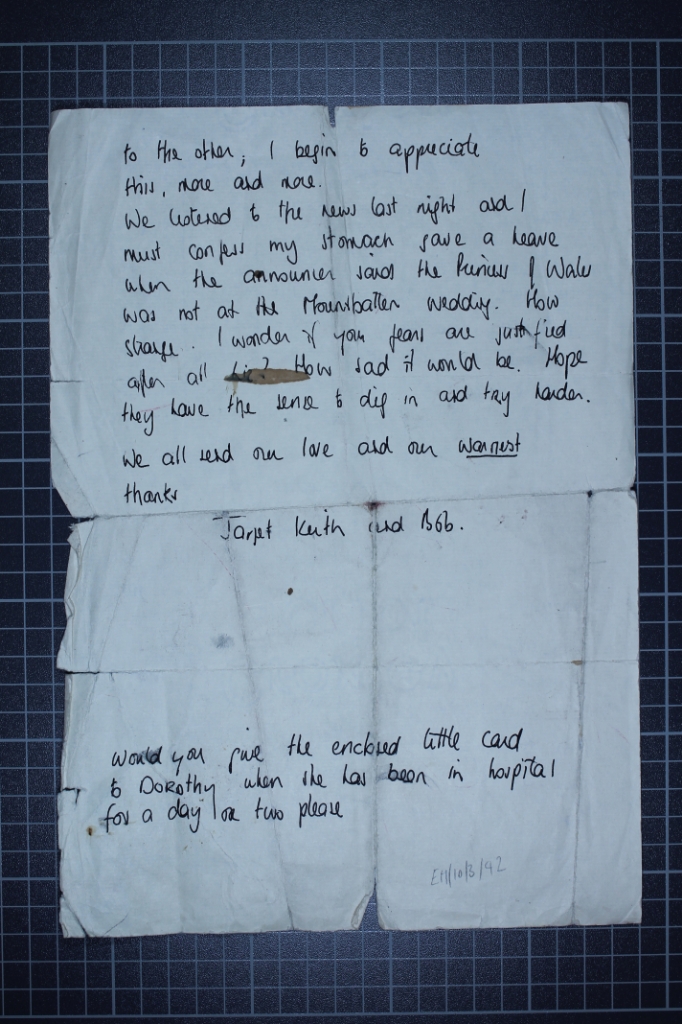 to the other; I begin to appreciate
this, more and more.
We listened to the news last night and I
must confess my stomach gave a heave
when the announcer said the Princess of Wales
was not at the Mountbatten wedding. How
strange. I wonder if your fears are justified
after all How sad it would be. Hope
they have the sense to dig in and try harder.
We all send our love and our warmest
thanks
Janet Keith and Bob.
Would you give the enclosed little card
to Dorothy when she has been in hospital
for a day or two please
EH/10/3/42